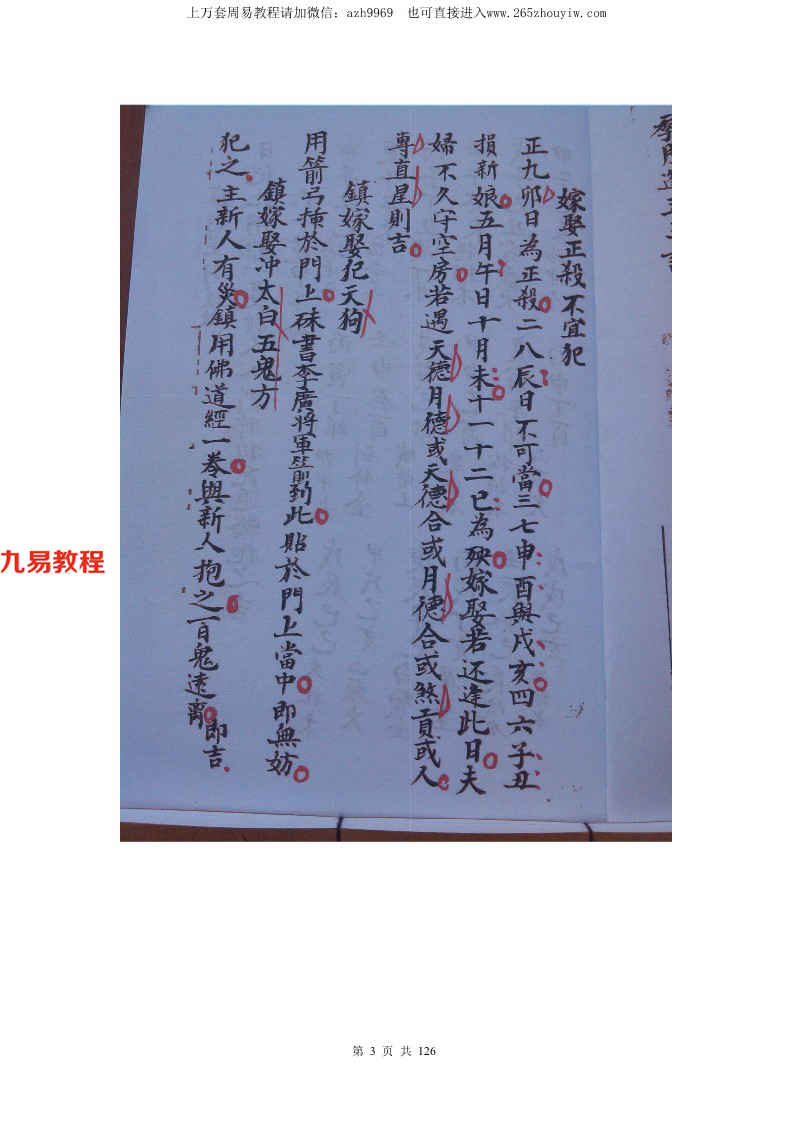 上万套周易教程请加微信：azh9969 也可直接进入www.265zhouyiw.com
嫁娶正殺不宜犯
正九卯日為正殺二八辰日不可當三七申酉與戌亥四六子丑
損新娘五月午日十月未十一十二巳為殃嫁娶若还逢此日夫
婦不久守空房若遇天德月德或天德合或月德合或煞貢或人
專直星則吉
鎮嫁娶犯天狗
用箭弓掛於門上硃書李廣將軍箭到此貼於門上當中即無妨
鎮嫁娶冲太白五鬼方
犯之主新人有災鎮用佛道經一卷與新人抱之百鬼遠離即吉
九易教程
第 3 页 共 126